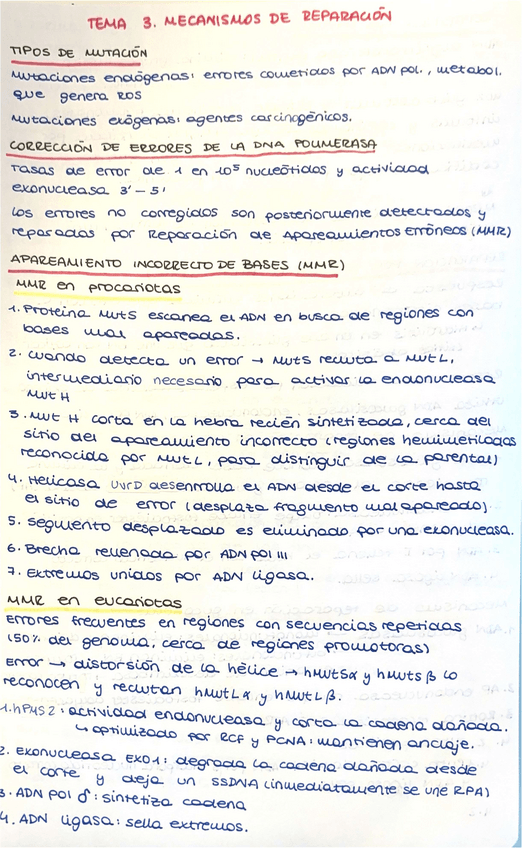 TEMA 3. MECANISMOS DE REPARACIÓN
TIPOS DE MUTACIÓN
Mutaciones endógenas: errores cometidos por ADN pol., metabol.
que genera ROS
Mutaciones exógenas: agentes carcinogénicos.
CORRECCIÓN DE ERRORES DE LA DNA POLIMERASA
Tasas de error de 1 en 10⁵ nucleótidos y actividad
exonucleasa 3'-5'
Los errores no corregidos son posteriormente detectados y
reparados por Reparación de Apareamientos Erróneos (MMR)
APAREAMIENTO INCORRECTO DE BASES (MMR)
MMR en procariotas
1. Proteína MutS escanea el ADN en busca de regiones con
bases mal apareadas.
2. Cuando detecta un error → MutS recluta a MutL,
intermediario necesario para activar la endonucleasa
Mut H
3. Mut H corta en la hebra recién sintetizada, cerca del
sitio del apareamiento incorrecto (regiones hemimetiladas
reconocida por MutL, para distinguir de la parental)
4. Helicasa UvrD desenrolla el ADN desde el corte hasta
el sitio de error (desplaza fragmento mal apareado).
5. Segmento desplazado es eliminado por una exonucleasa.
6. Brecha rellenada por ADN pol III
7. Extremos unidos por ADN ligasa.
MMR en eucariotas
Errores frecuentes en regiones con secuencias repetidas
(50% del genoma, cerca de regiones promotoras)
Error → distorsión de la hélice → hMutSα y hMutsβ lo
reconocen y reclutan hMutLα y hMutLβ.
1. hPMS2: actividad endonucleasa y corta la cadena dañada.
↳ optimizado por RCF y PCNA: mantienen anclaje.
2. Exonucleasa EXO1: degrada la cadena dañada desde
el corte y deja un ssDNA (inmediatamente se une RPA)
3. ADN pol δ: sintetiza cadena
4. ADN ligasa: sella extremos.